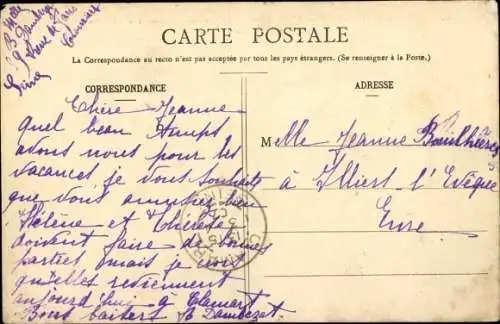 Mlle
B Dambezat
Rue de Paris
Clamart
Seine
CARTE POSTALE
La Correspondance au recto n'est pas acceptée par tous les pays étrangers. (Se renseigner à la Poste.)
CORRESPONDANCE
ADRESSE
Chère Jeanne
Quel beau temps
avons nous pour les
vacances je vous souhaite
que vous amusiez bien
Hélène et Thérèse
doivent faire de bonnes
parties mais je crois
qu'elles reviennent
aujourd'hui a Clamart
Bons baisers B Dambezat
Melle Jeanne
à Illiers l'Evêque
Eure